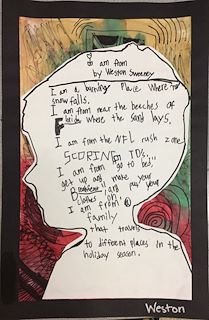 I am from
by Weston Sweeney
I am a burning place where no
snow falls.
I am from near the beaches of
Florida where the sand lays.
I am from the NFL rush zone
SCORING TD's,
I am from go to bed,
get up and make your
Breakfast, and put your
clothes on.
I am from a
family
that travels
to different places in the
holiday season.
Weston